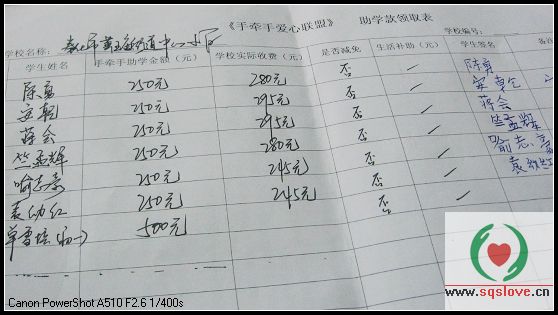 《手牵手爱心联盟》 助学款领取表
学校名称： 学校编号：
学生姓名 手牵手助学金额（元） 学校实际收费（元） 是否减免 生活补助（元） 学生签名
陈勇 250元 280元 否 / 陈勇
安乾 250元 295元 否 / 安乾
蒋会 250元 295元 否 / 蒋会
竺孟辉 250元 280元 否 / 竺孟辉
喻志豪 250元 245元 否 / 喻志豪
袁幼红 250元 245元 否 / 袁幼红
单雪 (初一) 500元
www.sqslove.cn
Canon PowerShot A510 F2.6 1/400s